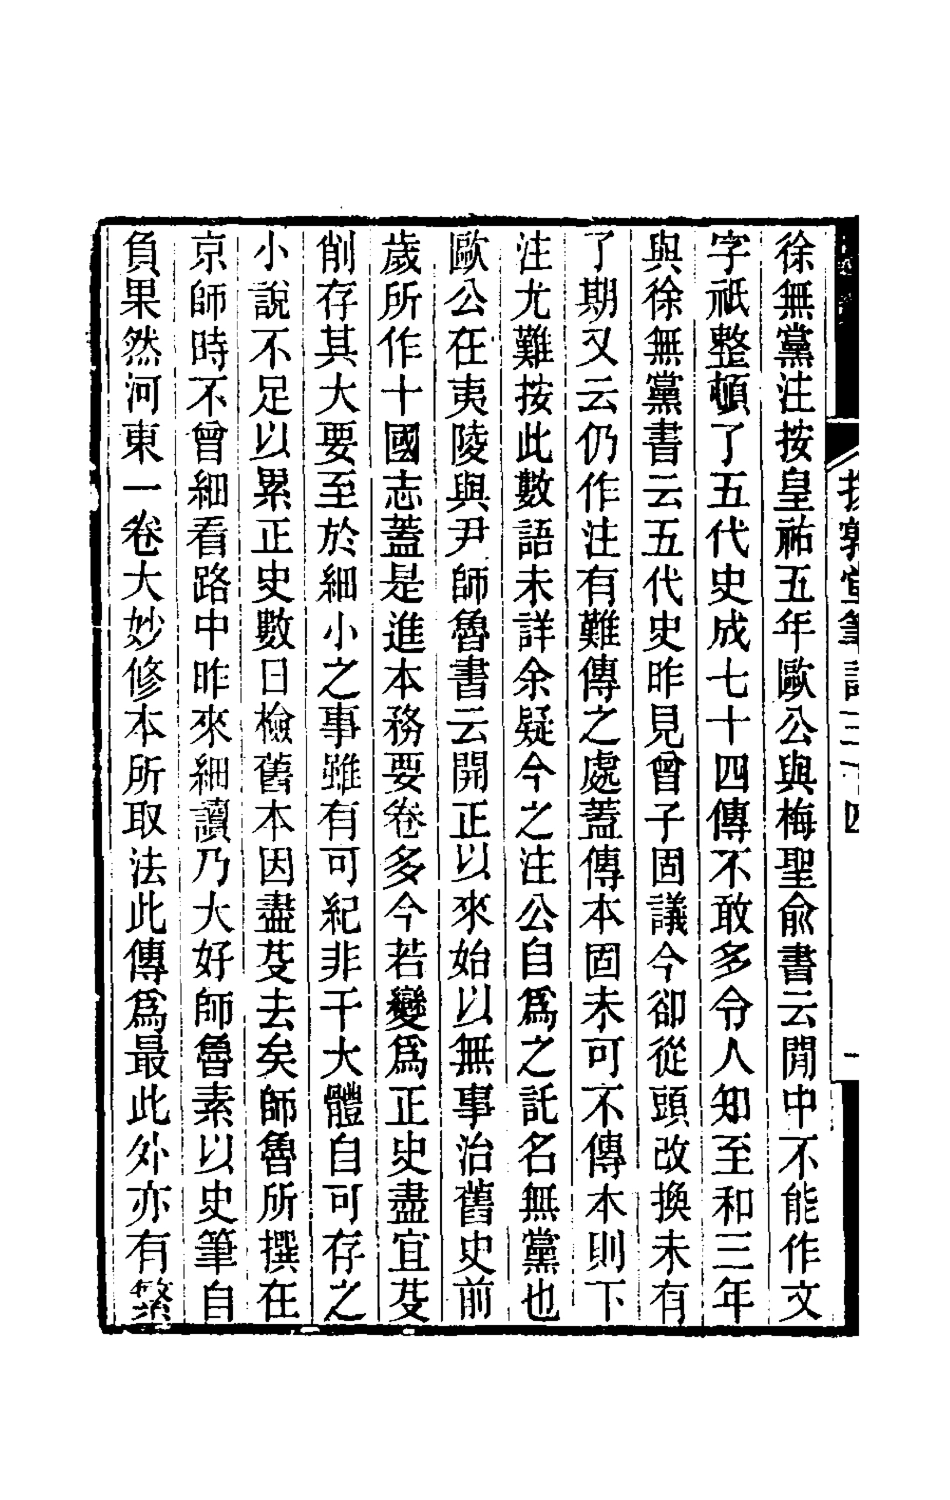 徐無黨注按皇祐五年歐公與梅聖俞書云閒中不能作文
字祇整頓了五代史成七十四傳不敢多令人知至和三年
與徐無黨書云五代史昨見曾子固議今卻從頭改換未有
了期又云仍作注有難傳之處蓋傳本固未可不傳本則下
注尤難按此數語未詳余疑今之注公自爲之託名無黨也
歐公在夷陵與尹師魯書云開正以來始以無事治舊史前
歲所作十國志蓋是進本務要卷多今若變爲正史盡宜芟
削存其大要至於細小之事雖有可紀非干大體自可存之
小說不足以累正史數日檢舊本因盡芟去矣師魯所撰在
京師時不曾細看路中昨來細讀乃大好師魯素以史筆自
負果然河東一卷大妙修本所取法此傳爲最此外亦有繁